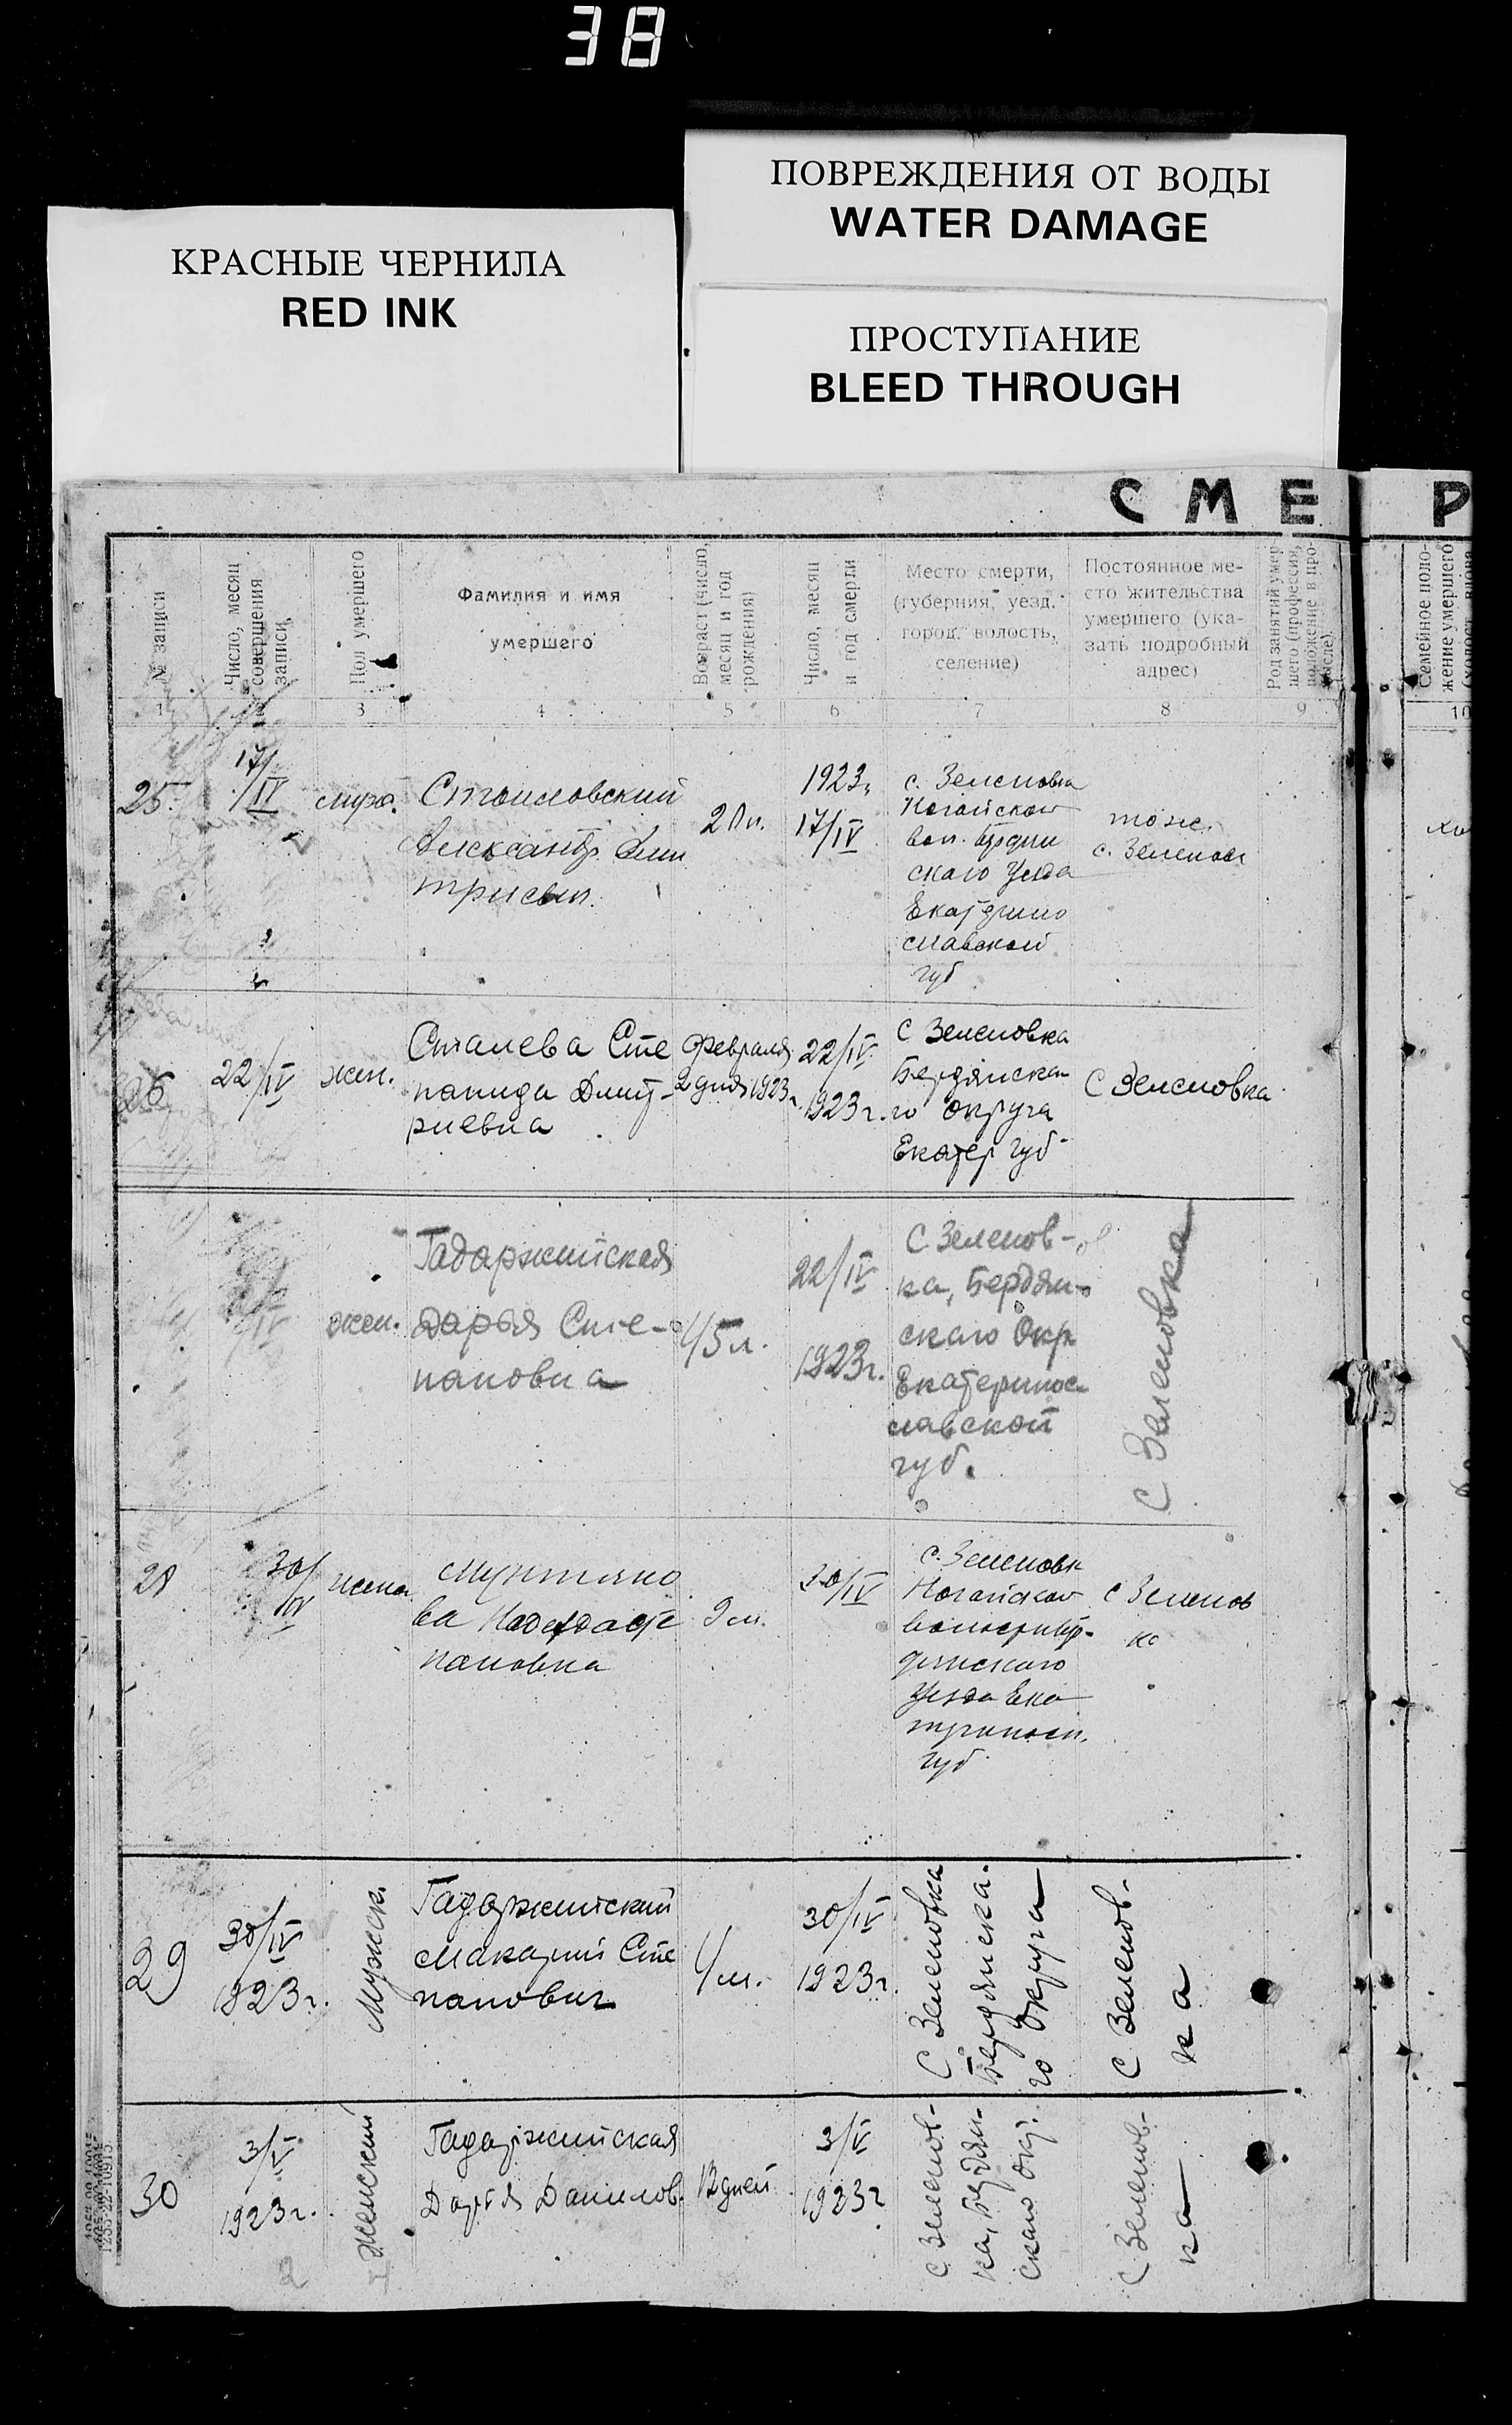 38
ПОВРЕЖДЕНИЯ ОТ ВОДЫ
WATER DAMAGE
КРАСНЫЕ ЧЕРНИЛА
RED INK
ПРОСТУПАНИЕ
BLEED THROUGH
СМЕ Р
№ записи
Число, месяц
совершения
записи
Пол умершего
Фамилия и имя
умершего
Возраст (число,
месяц и год
рождения)
Число, месяц
и год смерти
Место смерти,
(губерния, уезд,
город, волость,
селение)
Постоянное ме-
сто жительства
умершего (ука-
зать подробный
адрес)
Род занятий умер-
шего (профессия,
положение в про-
мысле)
Семейное поло-
жение умершего
(холост, вдова
1
3
4
5
6
7
8
9
10
25
17/IV
Александр Дми
1923г
17/IV
с. Зеленовка
Ногайской
вол.
ского уезда
Екатерино
славской
губ
тоже
с. Зеленов
26
22/IV
жен.
Сталева Сте
панида Дмит-
риевна
Февраля
2 дня 1923г.
22/IV
1923г.
С Зеленовка
Бердянска
го округа
Екатер губ
С Зеленовка
жен.
Гадаржийская
Дарья Сте-
пановна
45 л.
22/IV
1923г.
С Зеленов-
ка, Бердян-
скаго Окр
Екатеринос
лавской
губ.
С Зеленовка
28
30/IV
жена
Мунтяно
ва Надежда Сте
пановна
30/IV
с. Зеленовк
Ногайской
дянскаго
Уезда Ека
губ
с Зеленов
ка
29
30/IV
1923г.
Мужск.
Гадаржийский
Макарий Сте
панович
30/IV
1923г.
С Зеленовка
Бердянска-
го округа
С Зеленов-
ка
30
3/V
1923г.
Женский
Гадаржийская
Дарья Данилов.
13 дней
3/V
1923г
С Зеленов-
ка, Бердян-
скаго окр.
С Зеленов-
ка
2